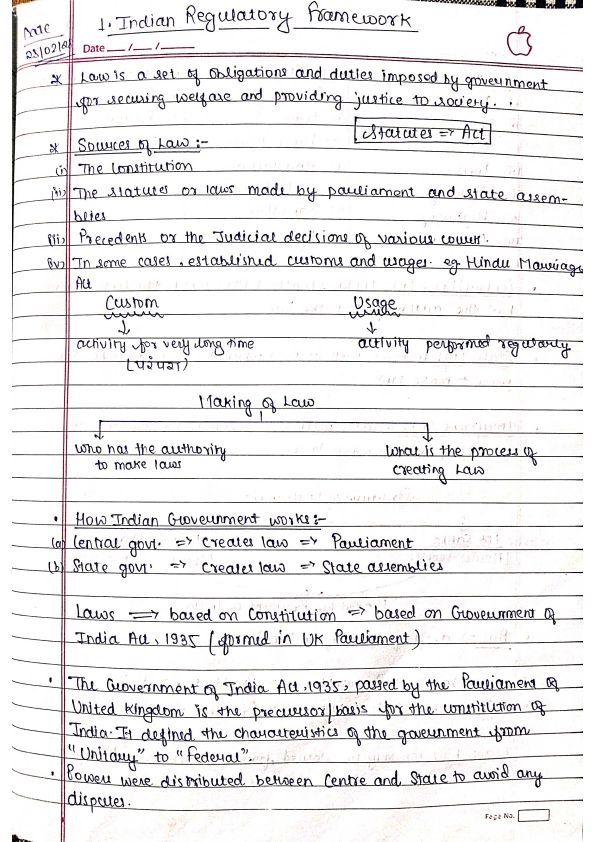 Date
1. Indian Regulatory Framework
Date __/__/__
* Law is a set of obligations and duties imposed by government
for securing welfare and providing justice to society.
Statutes => Act
* Sources of Law :-
(i) The Constitution
(ii) The statutes or laws made by pauliament and state assem-
blies
(iii) Precedents or the Judicial decisions of various court.
(iv) In some cases, established customs and usages. eg Hindu Marriage
Act
Custom Usage
↓ ↓
activity for very long time activity performed regularly
(परंपरा)
Making of Law
who has the authority What is the process of
to make laws creating Law
• How Indian Government works :-
(a) Central govt. => creates law => Parliament
(b) State govt. => creates law => State assemblies
Laws => based on Constitution => based on Government of
India Act, 1935 (formed in UK Parliament)
• The Government of India Act, 1935, passed by the Parliament of
United Kingdom is the precursor/basis for the constitution of
India. It defined the characteristics of the government from
"Unitary" to "Federal".
• Powers were distributed between Centre and State to avoid any
disputes.
Page No.